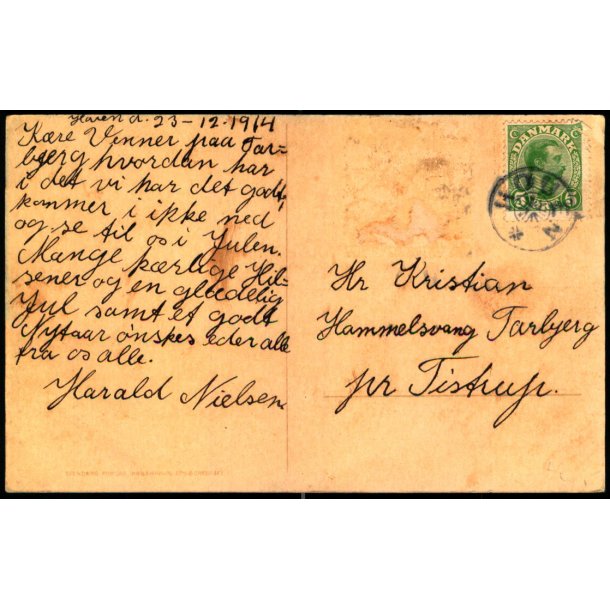 d. 23-12-1914
Kære Venner paa Tar-
bjerg hvordan har
i det vi har det godt,
kommer i ikke ned
og se til os i Julen.
Mange kærlige Hil-
sener og en glædelig
Jul samt et godt
Nytaar ønskes eder alle
fra os alle.
Harald Nielsen
DANMARK
5 ØRE 5
Hr Kristian
Hammelsvang Tarbjerg
pr Tistrup.